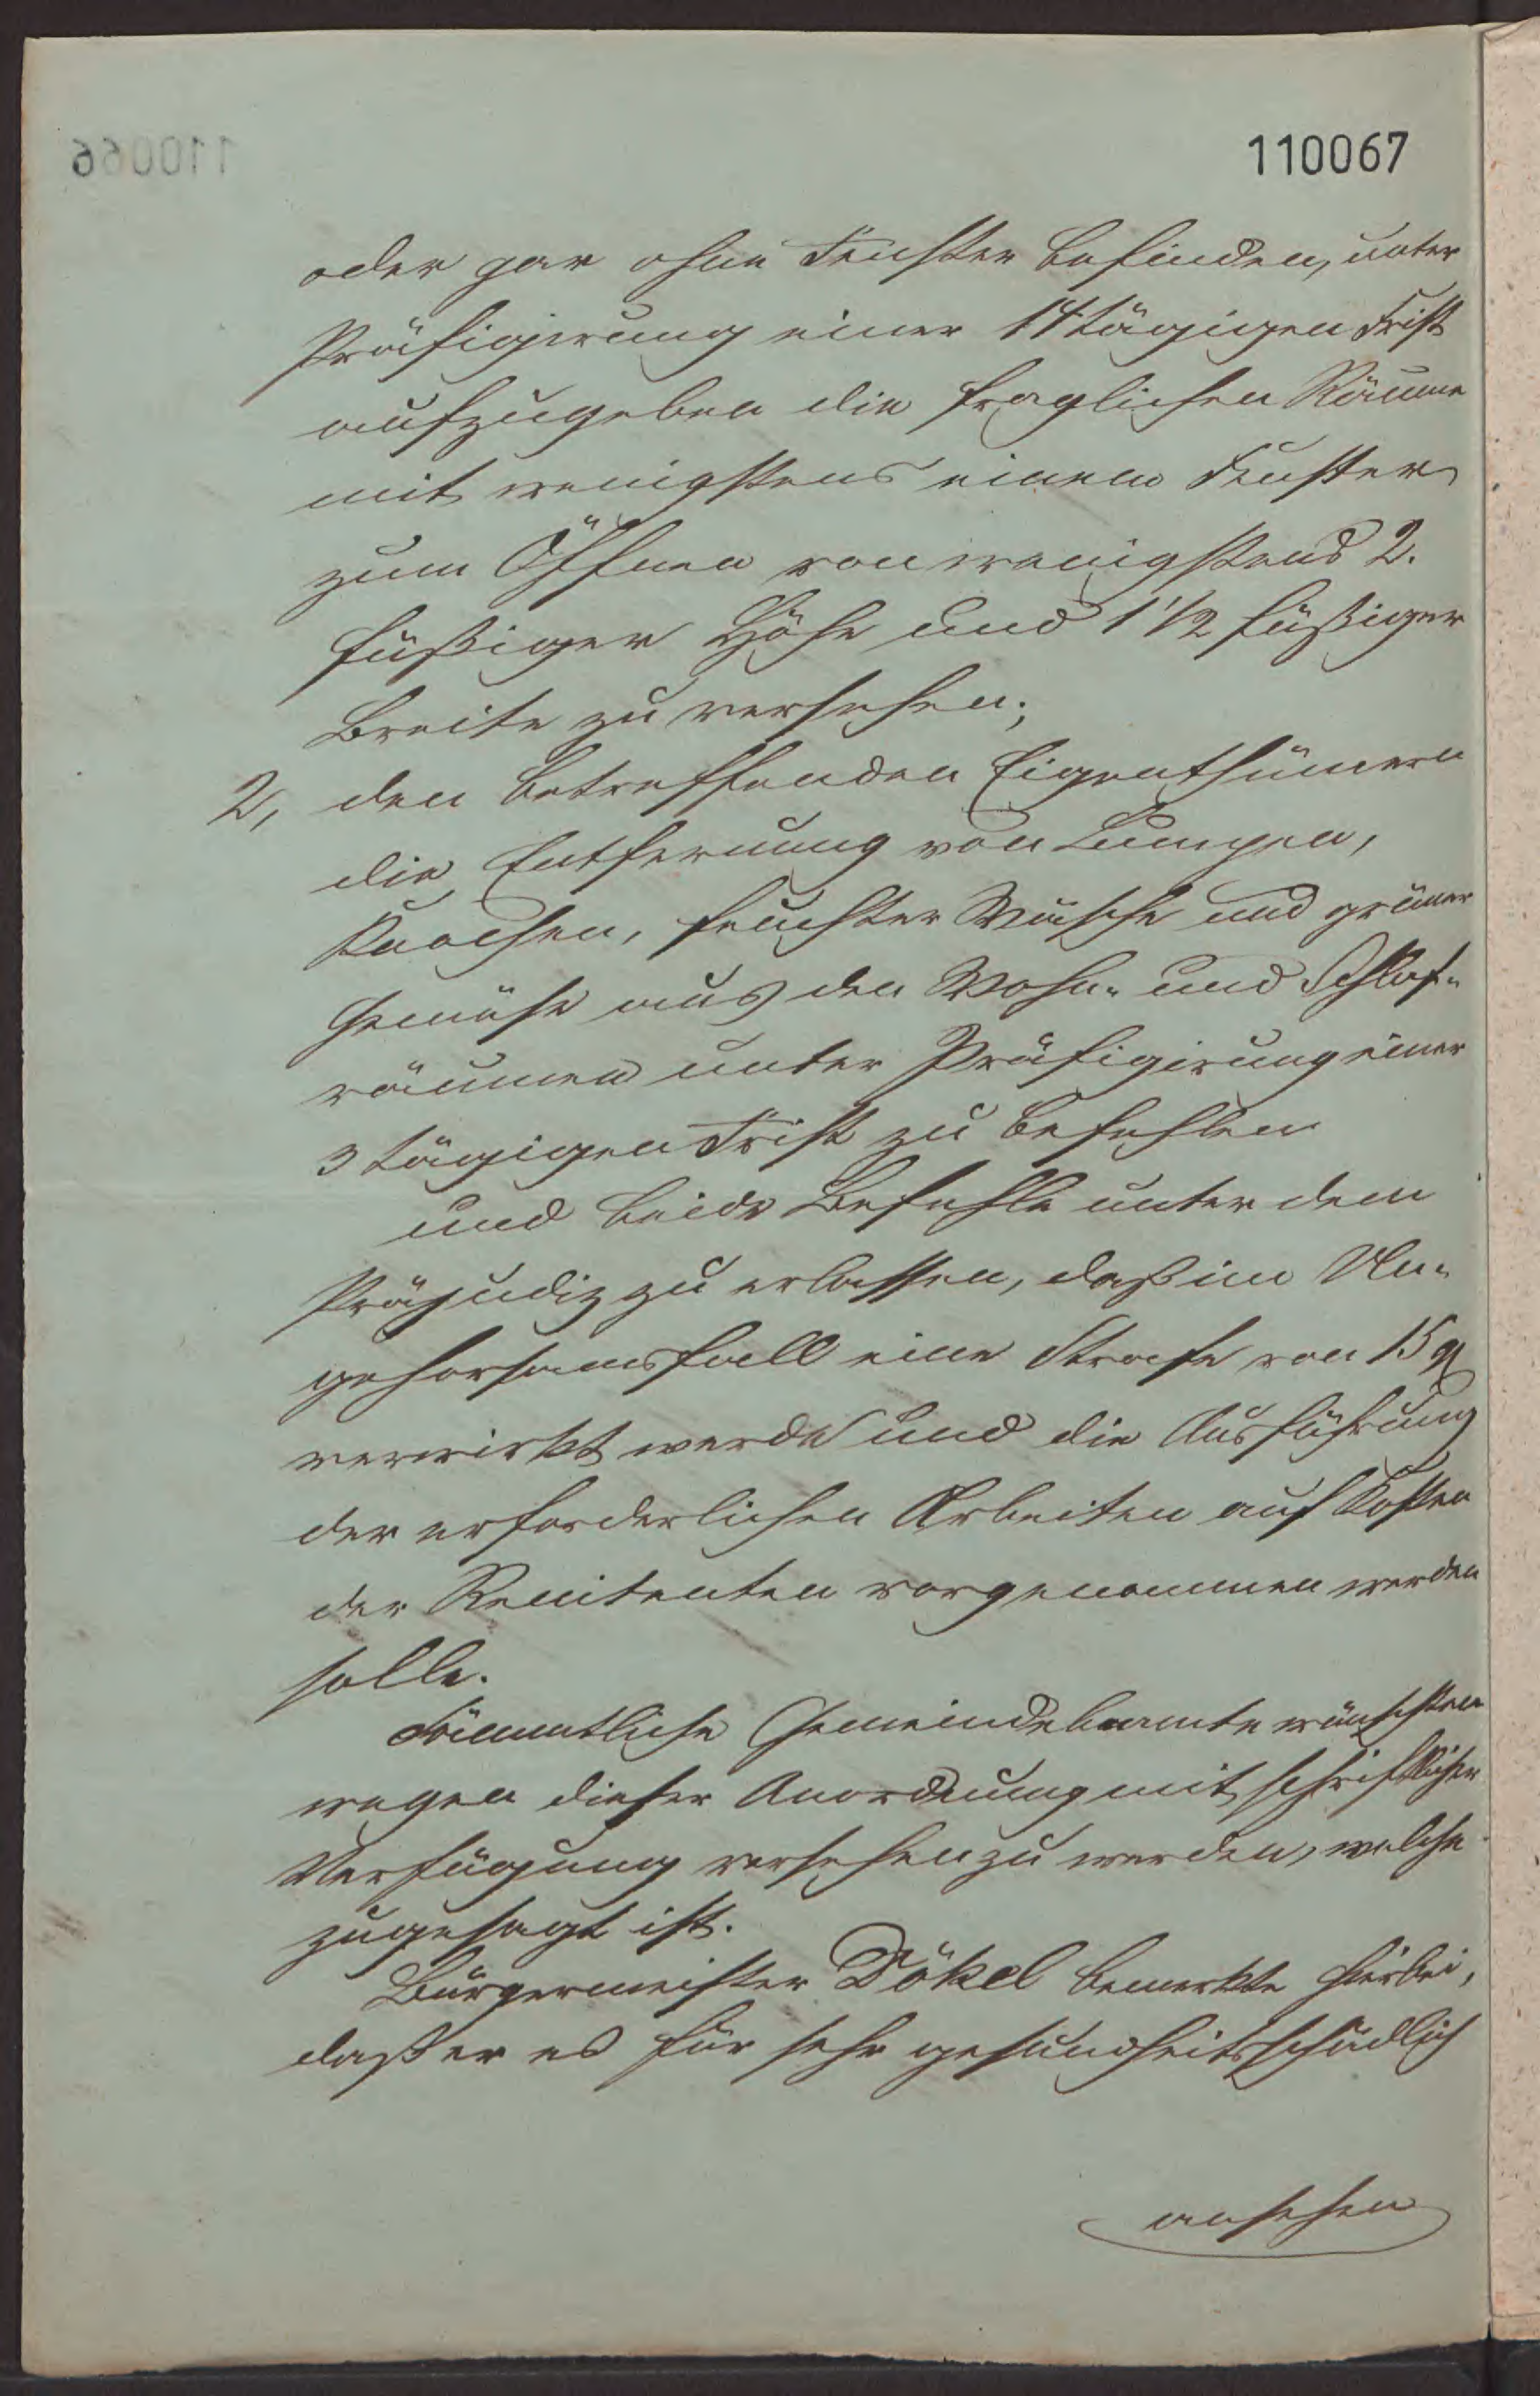 110067
oder gar ohne Fenster befinden, unter
Präfigirung einer 14tägigen Frist
aufzugeben die fraglichen Räume
mit wenigstens einem Fenster
zum Öffnen von wenigstens 2.
füßiger Höhe und 1 1/2 füßiger
Breite zu versehen;
2, den betreffenden Eigenthümern
die Entfernung von Lumpen,
Knochen, feuchter Wäsche und grüner
Gemüse aus den Wohn- und Schlaf-
räumen unter Präfigirung einer
3 tägigen Frist zu befehlen
und beide Befehle unter dem
Präjudiz zu erlassen, daß im Un-
gehorsamsfall eine Strafe von 15
verwirkt werde und die Ausführung
der erforderlichen Arbeiten auf Kosten
der Renitenten vorgenommen werden
solle.
Sämmtliche Gemeindebeamte wünschten
wegen dieser Anordnung mit schriftlicher
Verfügung versehen zu werden, welche
zugesagt ist.
Bürgermeister Dökel bemerkte hierbei,
daß er es für sehr gesundheitsschädlich
ansehen